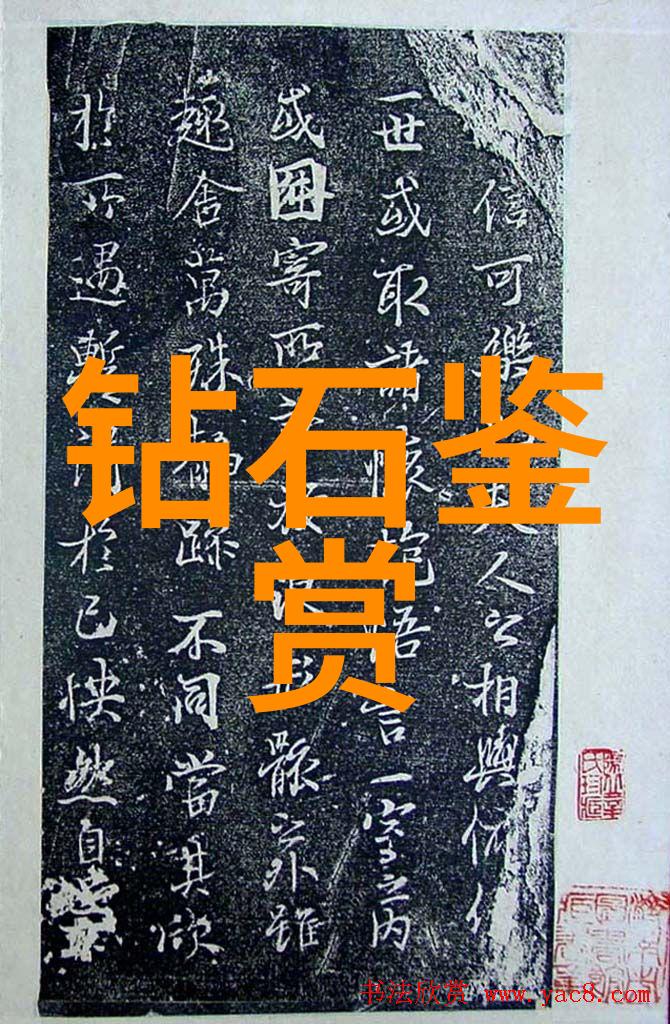 钻石鉴
赏
信可樂夫人之相與俯仰
一世或取諸懷抱悟言一室之内
或因寄所放浪形骸之外雖
趣舍萬殊静躁不同當其欣
於所遇暫得於己快然自
书法欣赏 www.yac8.com